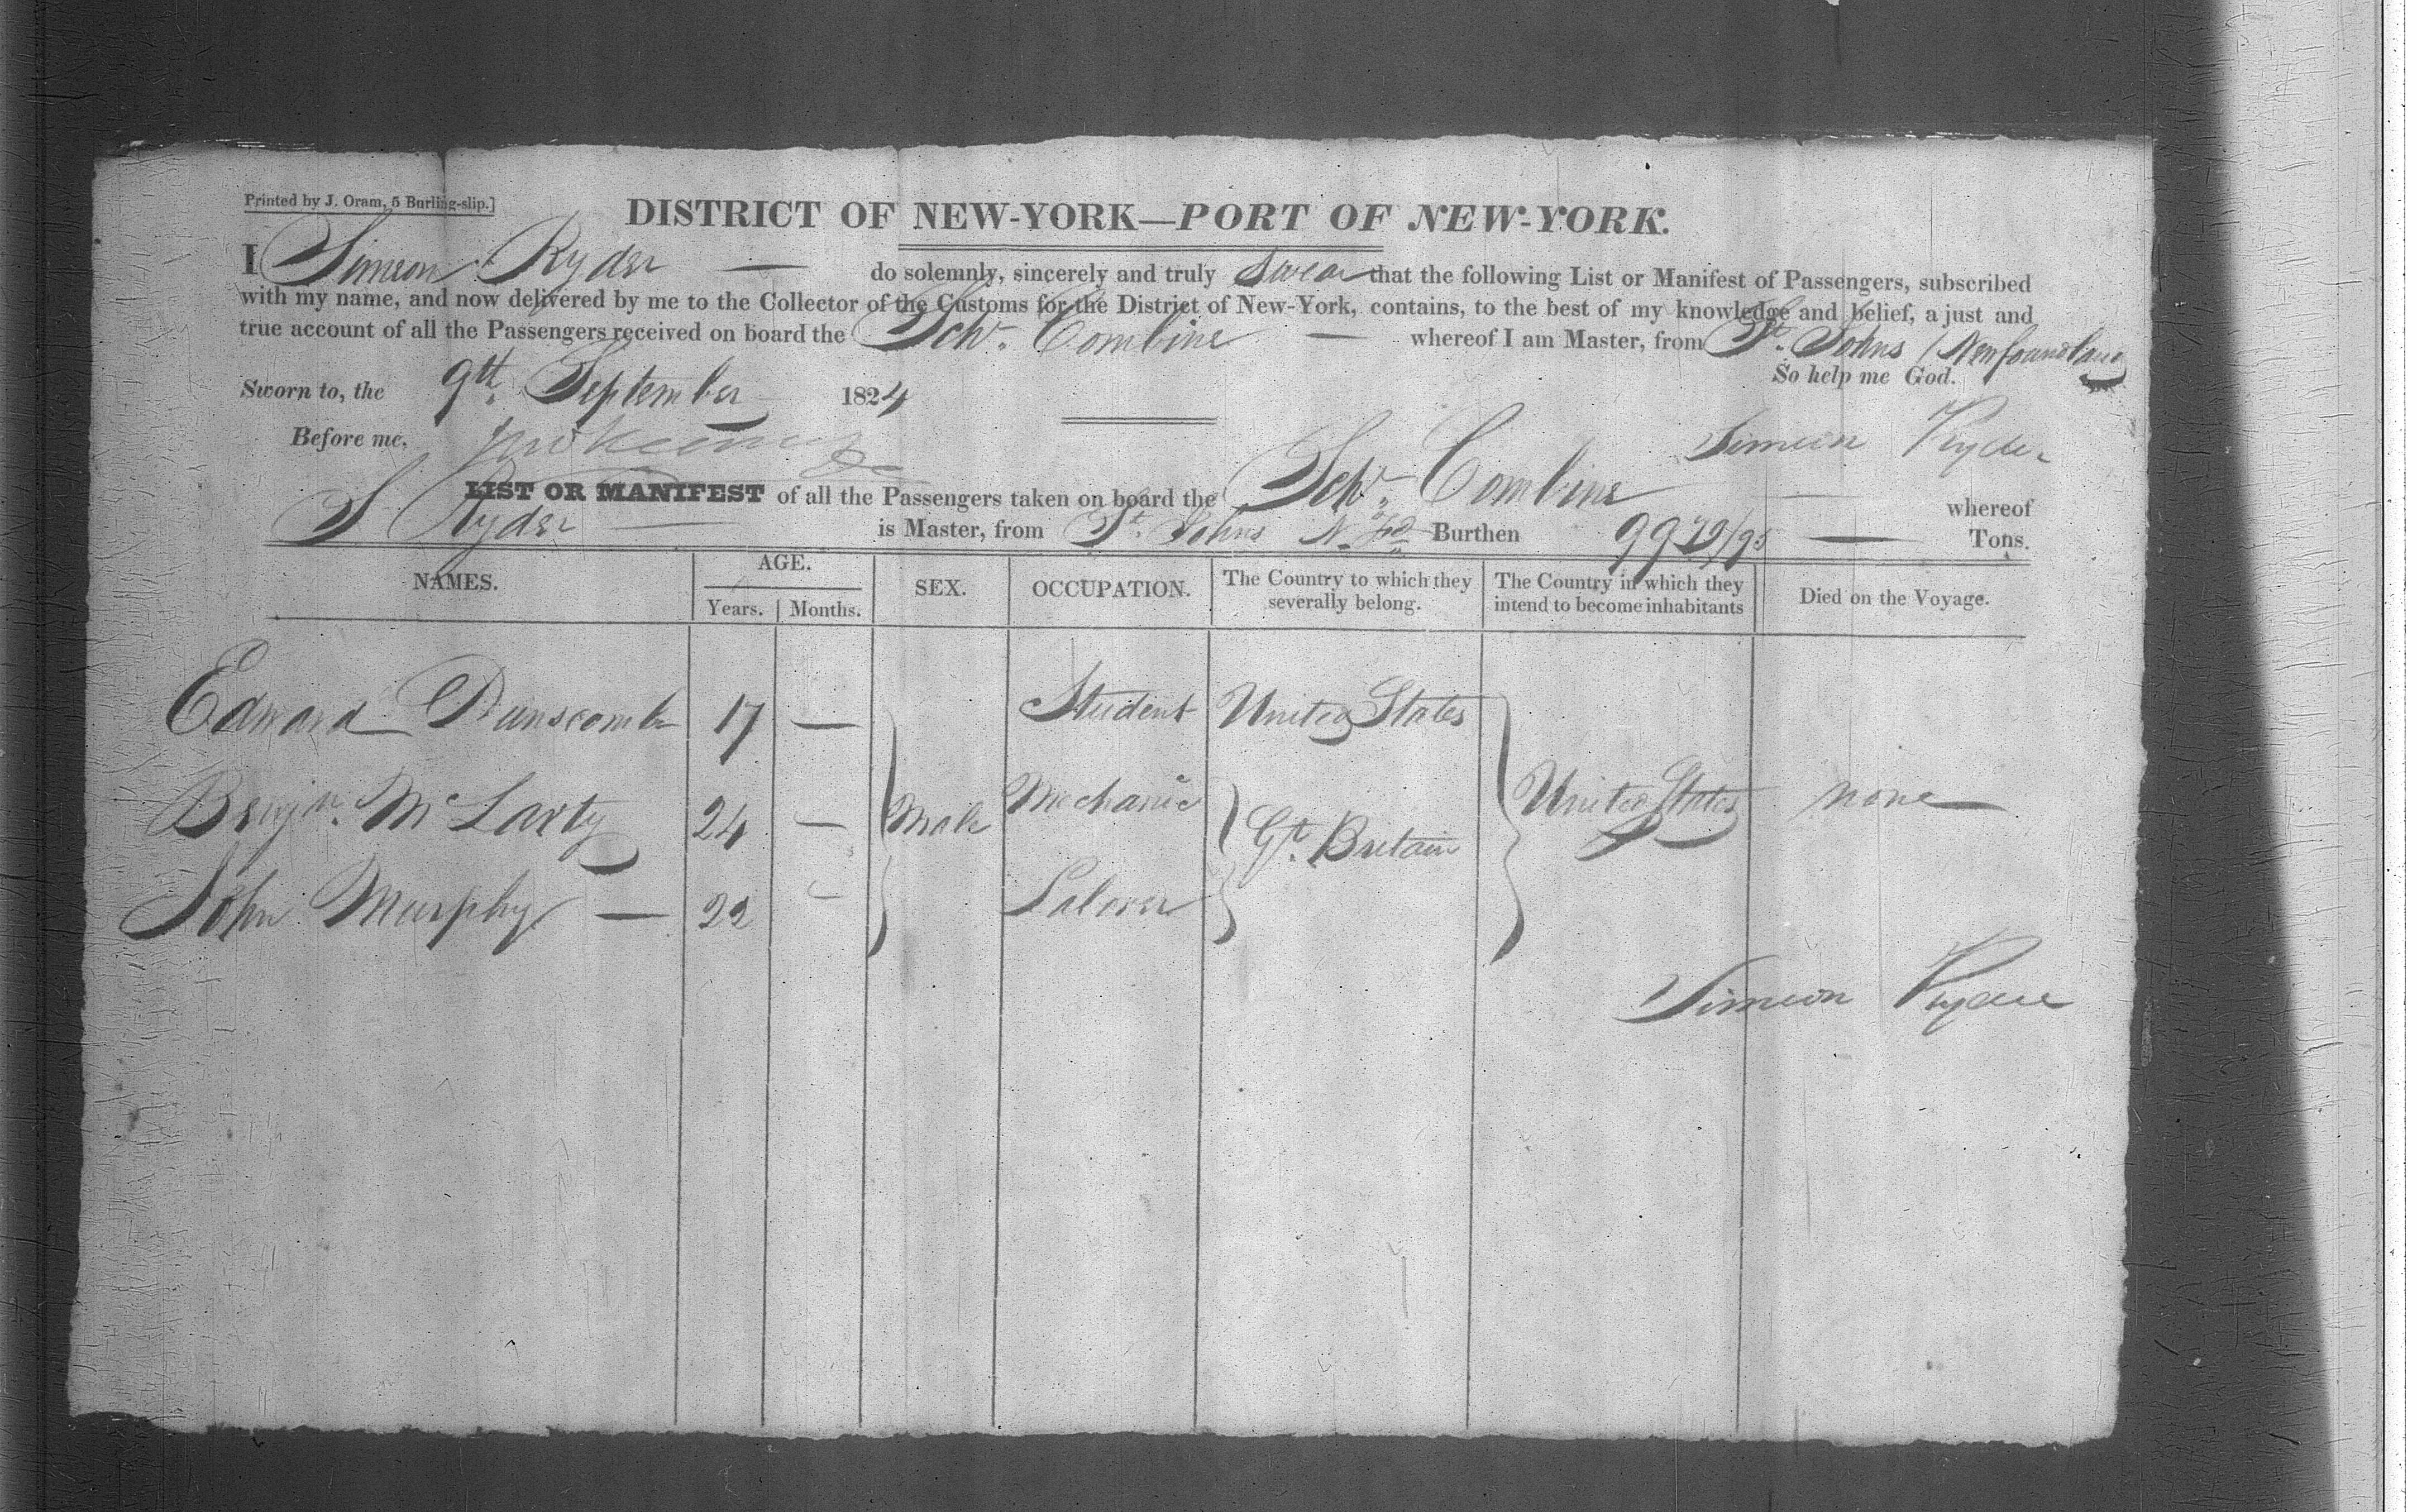 Printed by J. Oram, 5 Burling-slip.]
DISTRICT OF NEW-YORK—PORT OF NEW-YORK.
I Simeon Ryder — do solemnly, sincerely and truly swear that the following List or Manifest of Passengers, subscribed
with my name, and now delivered by me to the Collector of the Customs for the District of New-York, contains, to the best of my knowledge and belief, a just and
true account of all the Passengers received on board the Schr. Combine — whereof I am Master, from St. Johns (Newfoundland
So help me God.
Sworn to, the 9th. September 1824
Before me,
Simeon Ryder
LIST OR MANIFEST of all the Passengers taken on board the Schr. Combine — whereof
S Ryder — is Master, from St. Johns N. Fd Burthen 99 /95 — Tons.
NAMES. AGE. SEX. OCCUPATION. The Country to which they severally belong. The Country in which they intend to become inhabitants Died on the Voyage.
Years. Months.
Edward Dunscomb 17 — Student United States
Benjn. McLarty 24 — Male Mechanic Gt. Britain United States none
John Murphy — 22 — Laborer
Simeon Ryder